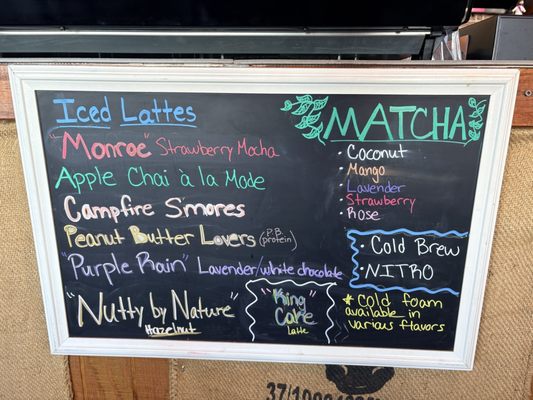 Iced Lattes
"Monroe" Strawberry Mocha
Apple Chai à la Mode
Campfire S'mores
Peanut Butter Lovers (P.B. protein)
"Purple Rain" Lavender/white chocolate
"Nutty by Nature"
Hazelnut
"King
Cake"
Latte
MATCHA
· Coconut
· Mango
· Lavender
· Strawberry
· Rose
· Cold Brew
· NITRO
* Cold foam
available in
various flavors